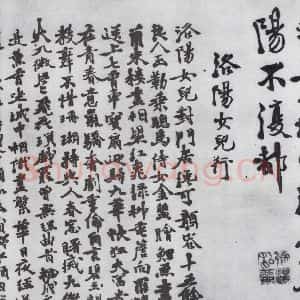 陽不復都
洛陽女兒行
洛陽女兒對門居才可顏容十五餘
良人玉勒乘驄馬侍女金盤鱠鯉魚畫
閣朱樓盡相望紅桃綠柳垂簷向羅幃
送上七香車寶扇迎歸九華帳狂夫富貴
在青春意氣驕奢劇季倫自憐碧玉親
教舞不惜珊瑚持與人春窗曙滅九微
火九微片片飛花璅戲罷曾無理曲時妝
成祇是熏香坐城中相識盡繁華日夜經過
Shufawang.cn